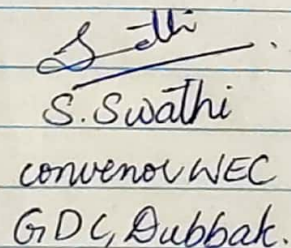 Swathi
S. Swathi
convenor WEC
GDC, Dubbak.